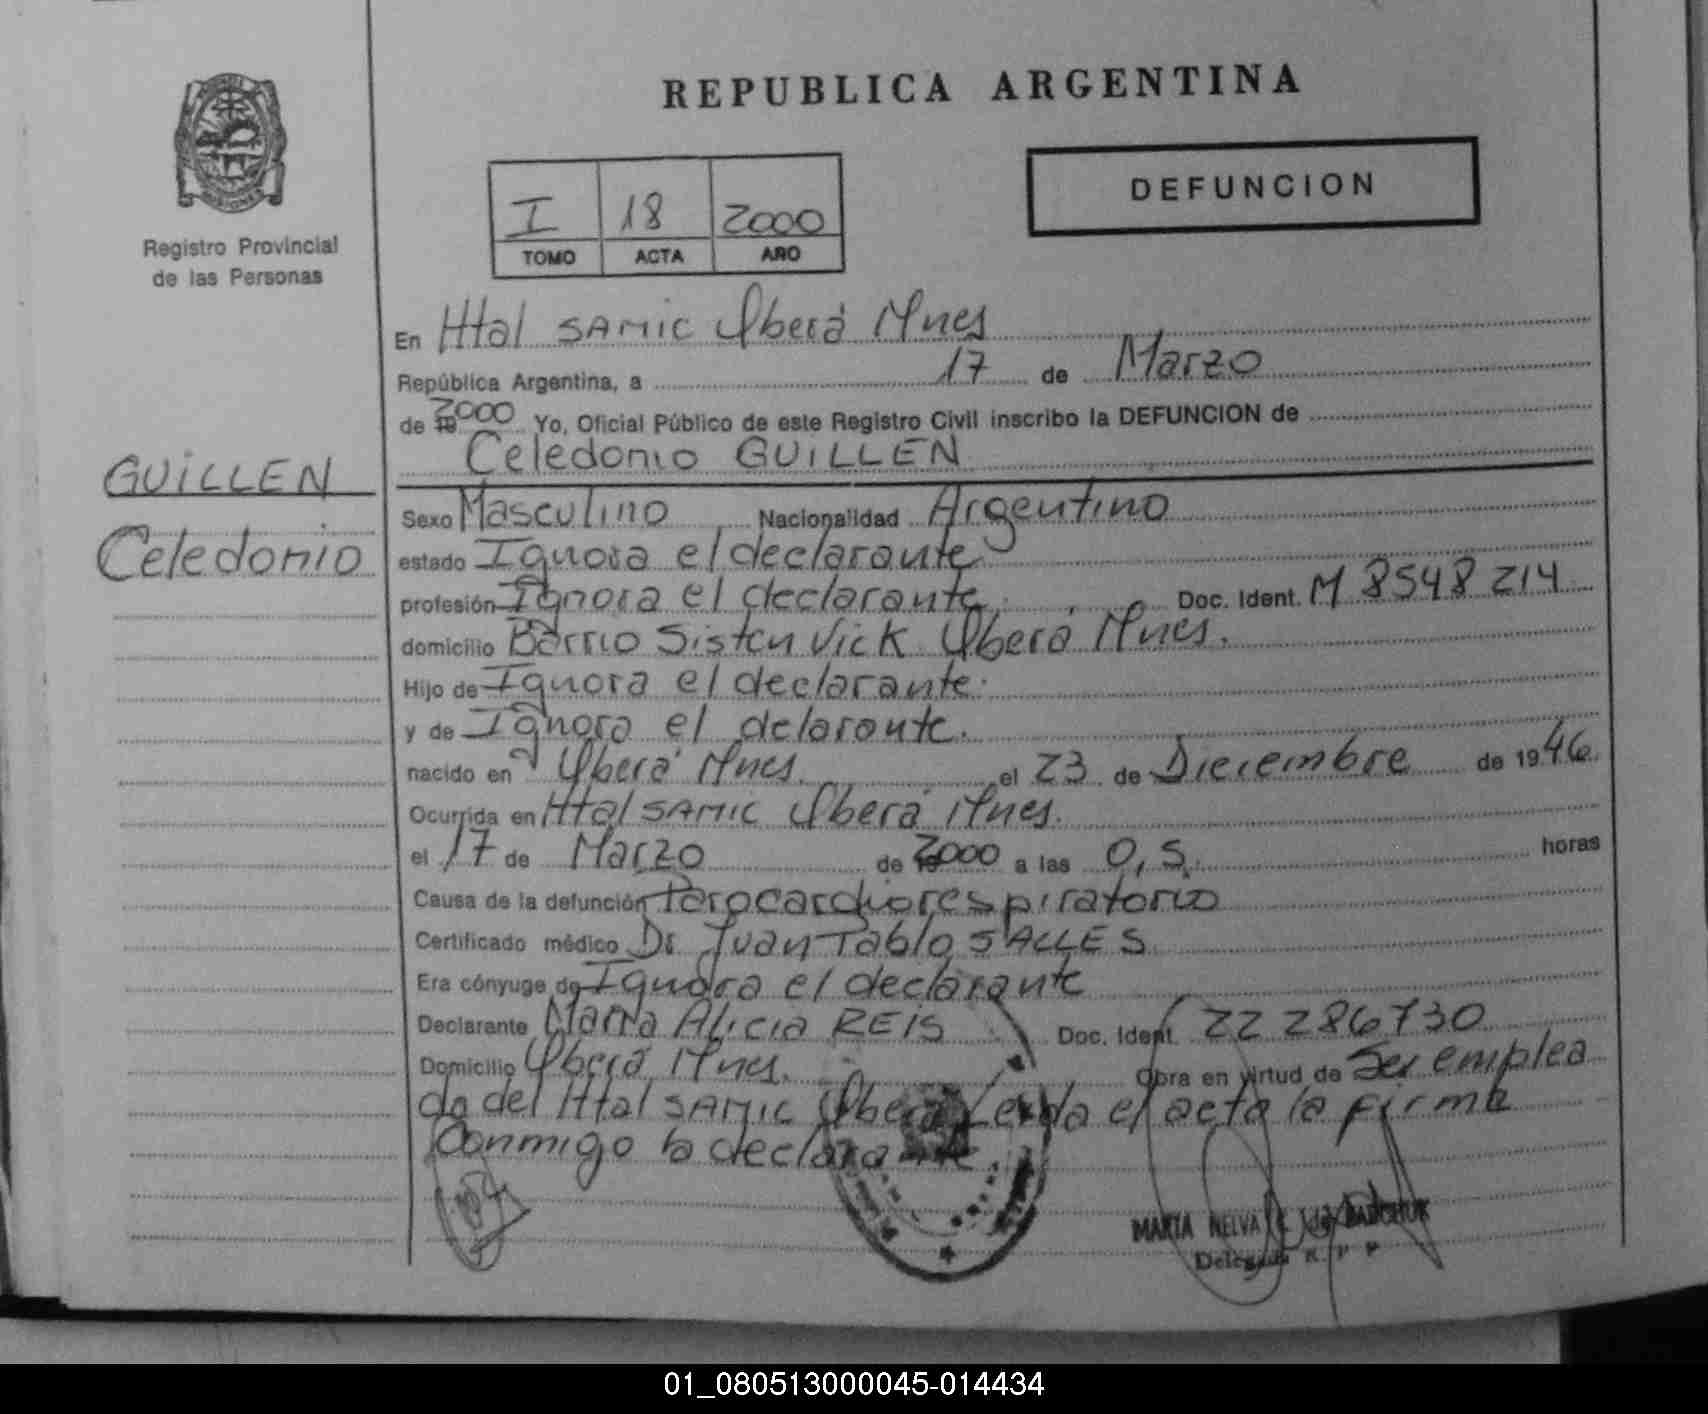 REPUBLICA ARGENTINA
DEFUNCION
I 18 2000
TOMO ACTA AÑO
Registro Provincial
de las Personas
En Htal SAMIC Oberá Mnes
República Argentina, a 17 de Marzo
de 2000 Yo, Oficial Público de este Registro Civil inscribo la DEFUNCION de
Celedonio GUILLEN
GUILLEN
Celedonio
Sexo Masculino Nacionalidad Argentino
estado Ignora el declarante
profesión Ignora el declarante. Doc. Ident. M 8548214
domicilio Barrio Sisten Vick Oberá Mnes.
Hijo de Ignora el declarante.
y de Ignora el delarante.
nacido en Oberá Mnes. el 23 de Dieciembre de 1946.
Ocurrida en Htal SAMIC Oberá Mnes.
el 17 de Marzo de 2000 a las 0,5. horas
Causa de la defunción Parocardiorespiratorio
Certificado médico Dr Juan Pablo SALLES
Era cónyuge de Ignora el declarante
Declarante María Alicia REIS Doc. Ident. 22 286730
Domicilio Oberá Mnes. Obra en virtud de Ser emplea
da del Htal SAMIC Oberá Leida el acta la firma
Conmigo la declarante.
MARIA NELVA
Delegada R. P. P.
01_080513000045-014434